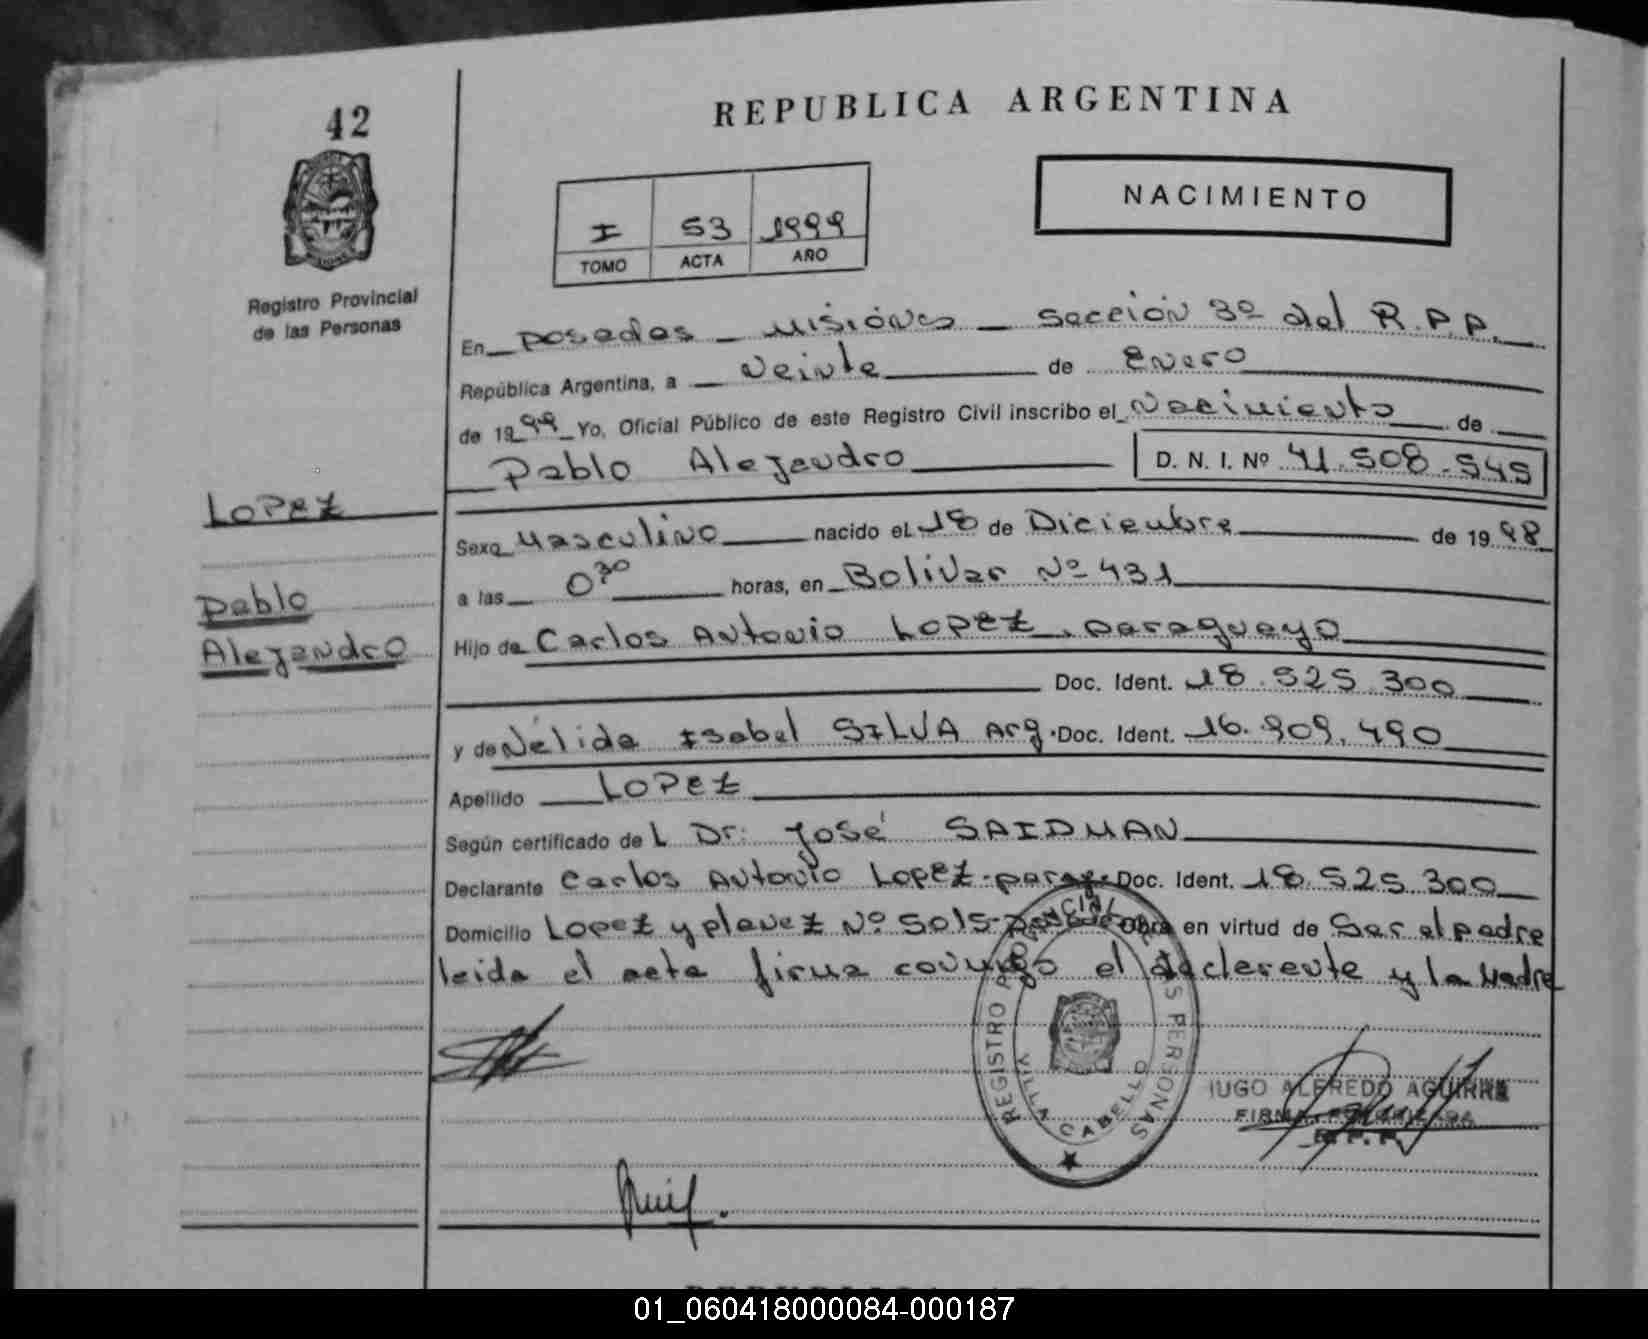 42
REPUBLICA ARGENTINA
NACIMIENTO
I 53 1999
TOMO ACTA AÑO
Registro Provincial
de las Personas
En Posadas - Misiónes - Sección 3º del R.P.P.
República Argentina, a Veinte de Enero
de 1999 Yo, Oficial Público de este Registro Civil inscribo el Nacimiento de
Pablo Alejandro D. N. I. Nº 41.508.545
LOPEZ
Sexo Masculino nacido el 18 de Diciembre de 1998
a las 0³⁰ horas, en Bolivar Nº 431
Pablo
Alejandro
Hijo de Carlos Antonio LOPEZ, paraguayo
Doc. Ident. 18.525.300
y de Nélida Isabel SILVA Arg. Doc. Ident. 16.909.490
Apellido LOPEZ
Según certificado de L Dr: José SAIDMAN
Declarante Carlos Antonio Lopez - parag. Doc. Ident. 18.525.300
Domicilio Lopez y planez Nº 5015- Posadas Obra en virtud de Ser el padre
leida el acta firma conmigo el declarente y la Madre
REGISTRO PROVINCIAL DE LAS PERSONAS
VILLA CABELLO
HUGO ALFREDO AGUIRRE
FIRMA AUTORIZADA
R.P.P.
01_060418000084-000187